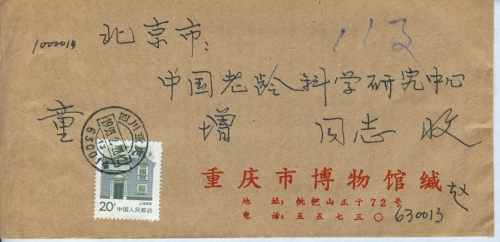 1000013
北京市:
中国老龄科学研究中心
童 增 同志 收
四川重庆
630013
20分 中国人民邮政
上海民居
重庆市博物馆缄 赵
地 址:枇杷山正于72号
电 话:五五七三〇
630013